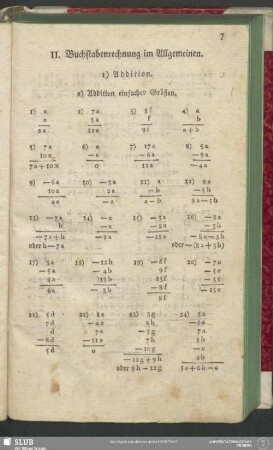 7
II. Buchstabenrechnung im Allgemeinen.
1) Addition.
a) Addition einfacher Größen.
1) a 2) 7a 3) 8f 4) a
a 5a f b
2a 12a 9f a+b
5) 7a 6) a 7) 17a 8) 5a
10x —a —6a —9a
7a+10x 0 11a —4a
9) —6a 10) —3a 11) a 12) 8a
10a 2a —b —5b
4a —a a—b 8a—5b
13) —7a 14) —a 15) —5a 16) —8a
b —a —3b
—7a+b —2a —8a—3b
oder b—7a oder —(8a+3b)
17) 3a 18) —12b 19) —6f 20) —7c
—5a —4b 3f —5c
8a 13b —3c
6a —3b 8f —15c
21) 5d 22) 8e 23) 3g 24) 3a
7d —4e 2h
d 7e —5g 7a
—8d —11e 7h 2b
5d 0 —10g —c
—11g+9h 4b
oder 9h—11g 5a+6b—c
SLUB